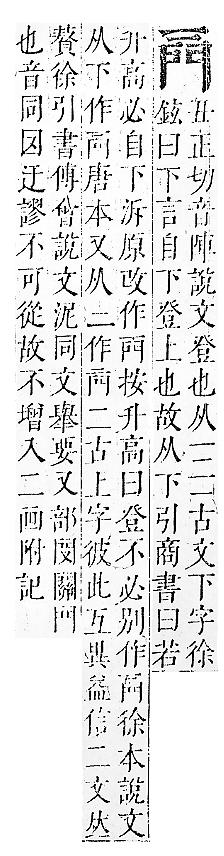 丑正切音陣說文登也从二二古文下字徐
鉉曰下言自下登上也故从下引商書曰若
升高必自下泝原改作按升高曰登不必別作徐本說文
从下作唐本又从二作二古上字彼此互異益信二文𠀤
贅徐引書傅會說文泥同文舉要又部閔關門
也音同囙迂謬不可從故不增入二画附記